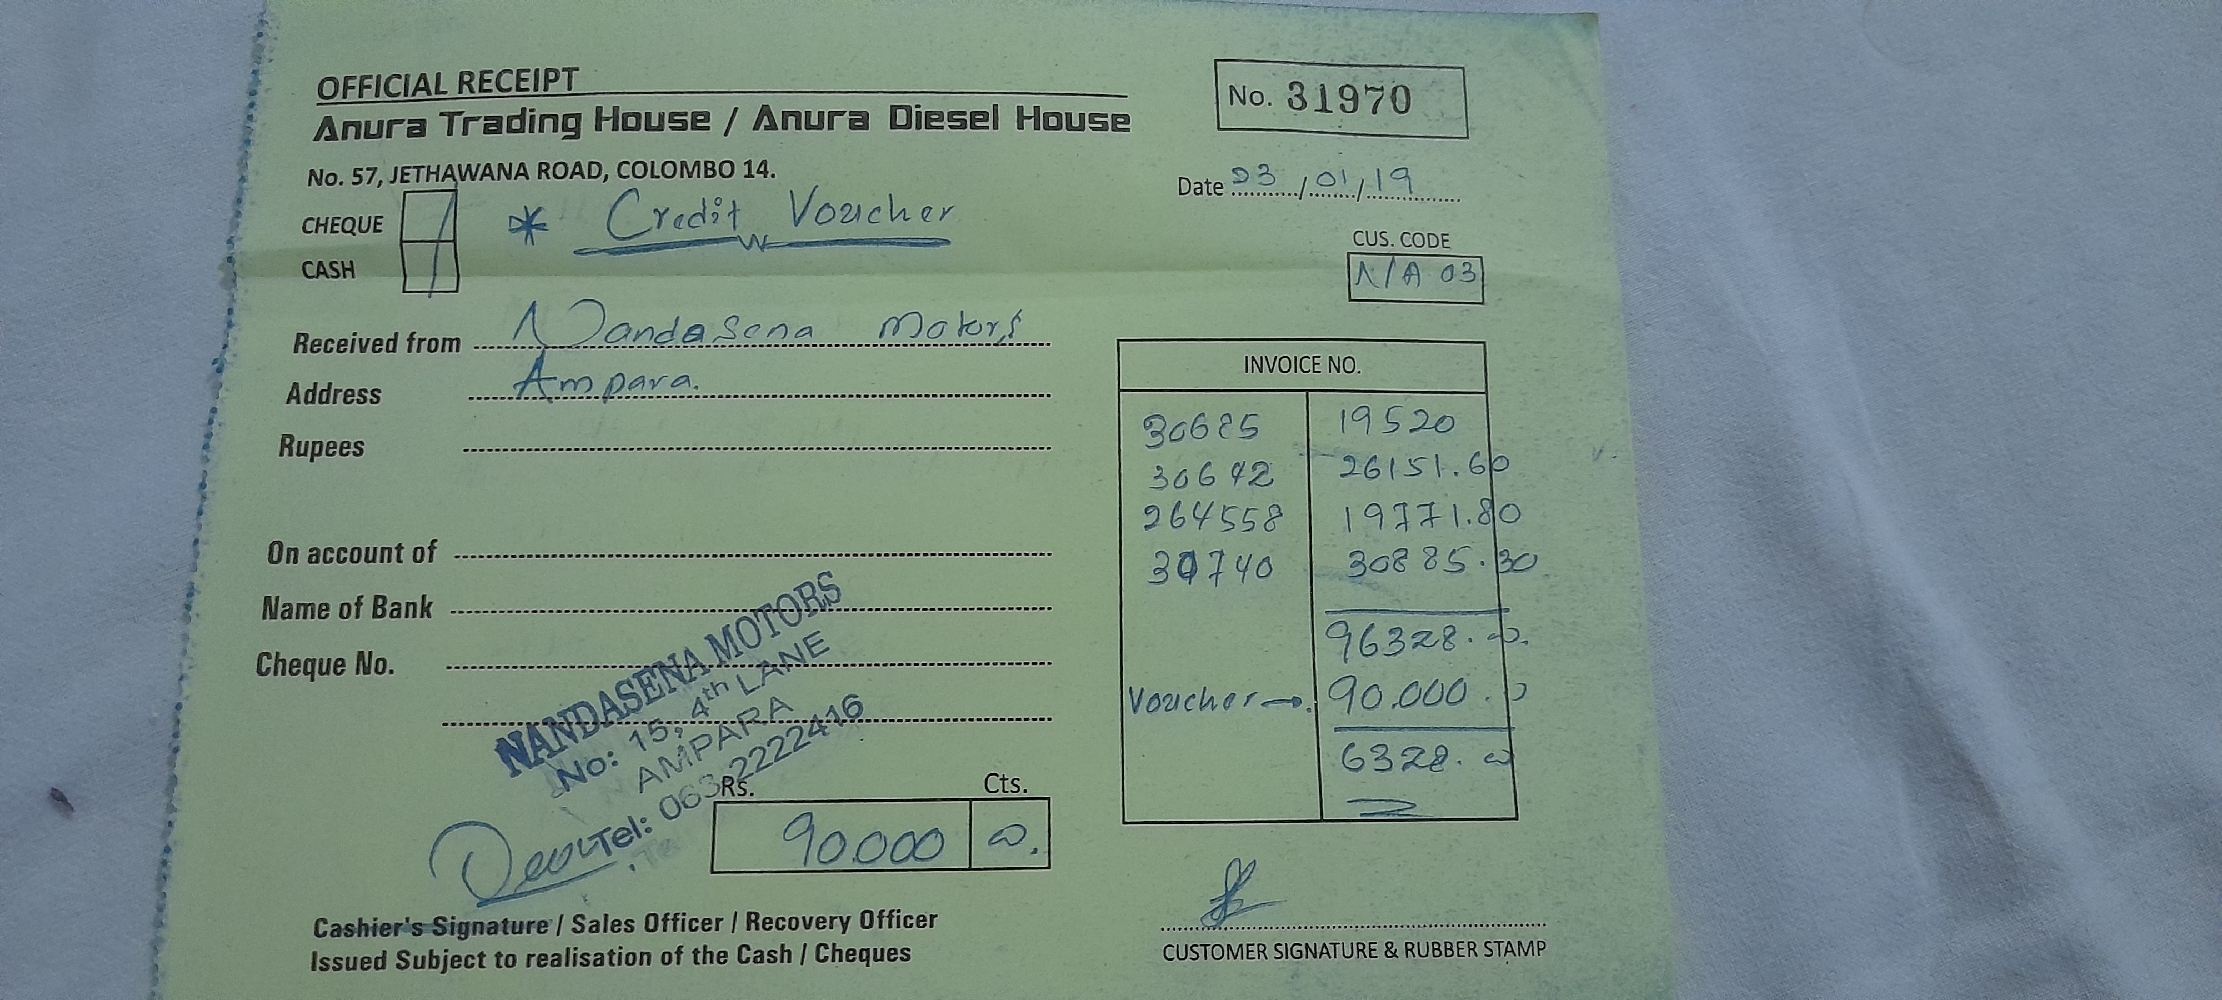 OFFICIAL RECEIPT
No. 31970
Anura Trading House / Anura Diesel House
No. 57, JETHAWANA ROAD, COLOMBO 14.
Date 03/01/19
CHEQUE
* Credit Voucher
CASH
CUS. CODE
N/A 03
Received from Nandasena Motors
Address Ampara.
Rupees
On account of
Name of Bank
Cheque No.
INVOICE NO.
30685 19520
30642 26151.60
264558 19771.80
30740 30885.30
96328.00
Voucher → 90.000.0
6328.00
NANDASENA MOTORS
No: 15, 4th LANE
AMPARA
Tel: 063 2222416
Rs. Cts.
90.000 00.
Cashier's Signature / Sales Officer / Recovery Officer
Issued Subject to realisation of the Cash / Cheques
CUSTOMER SIGNATURE & RUBBER STAMP